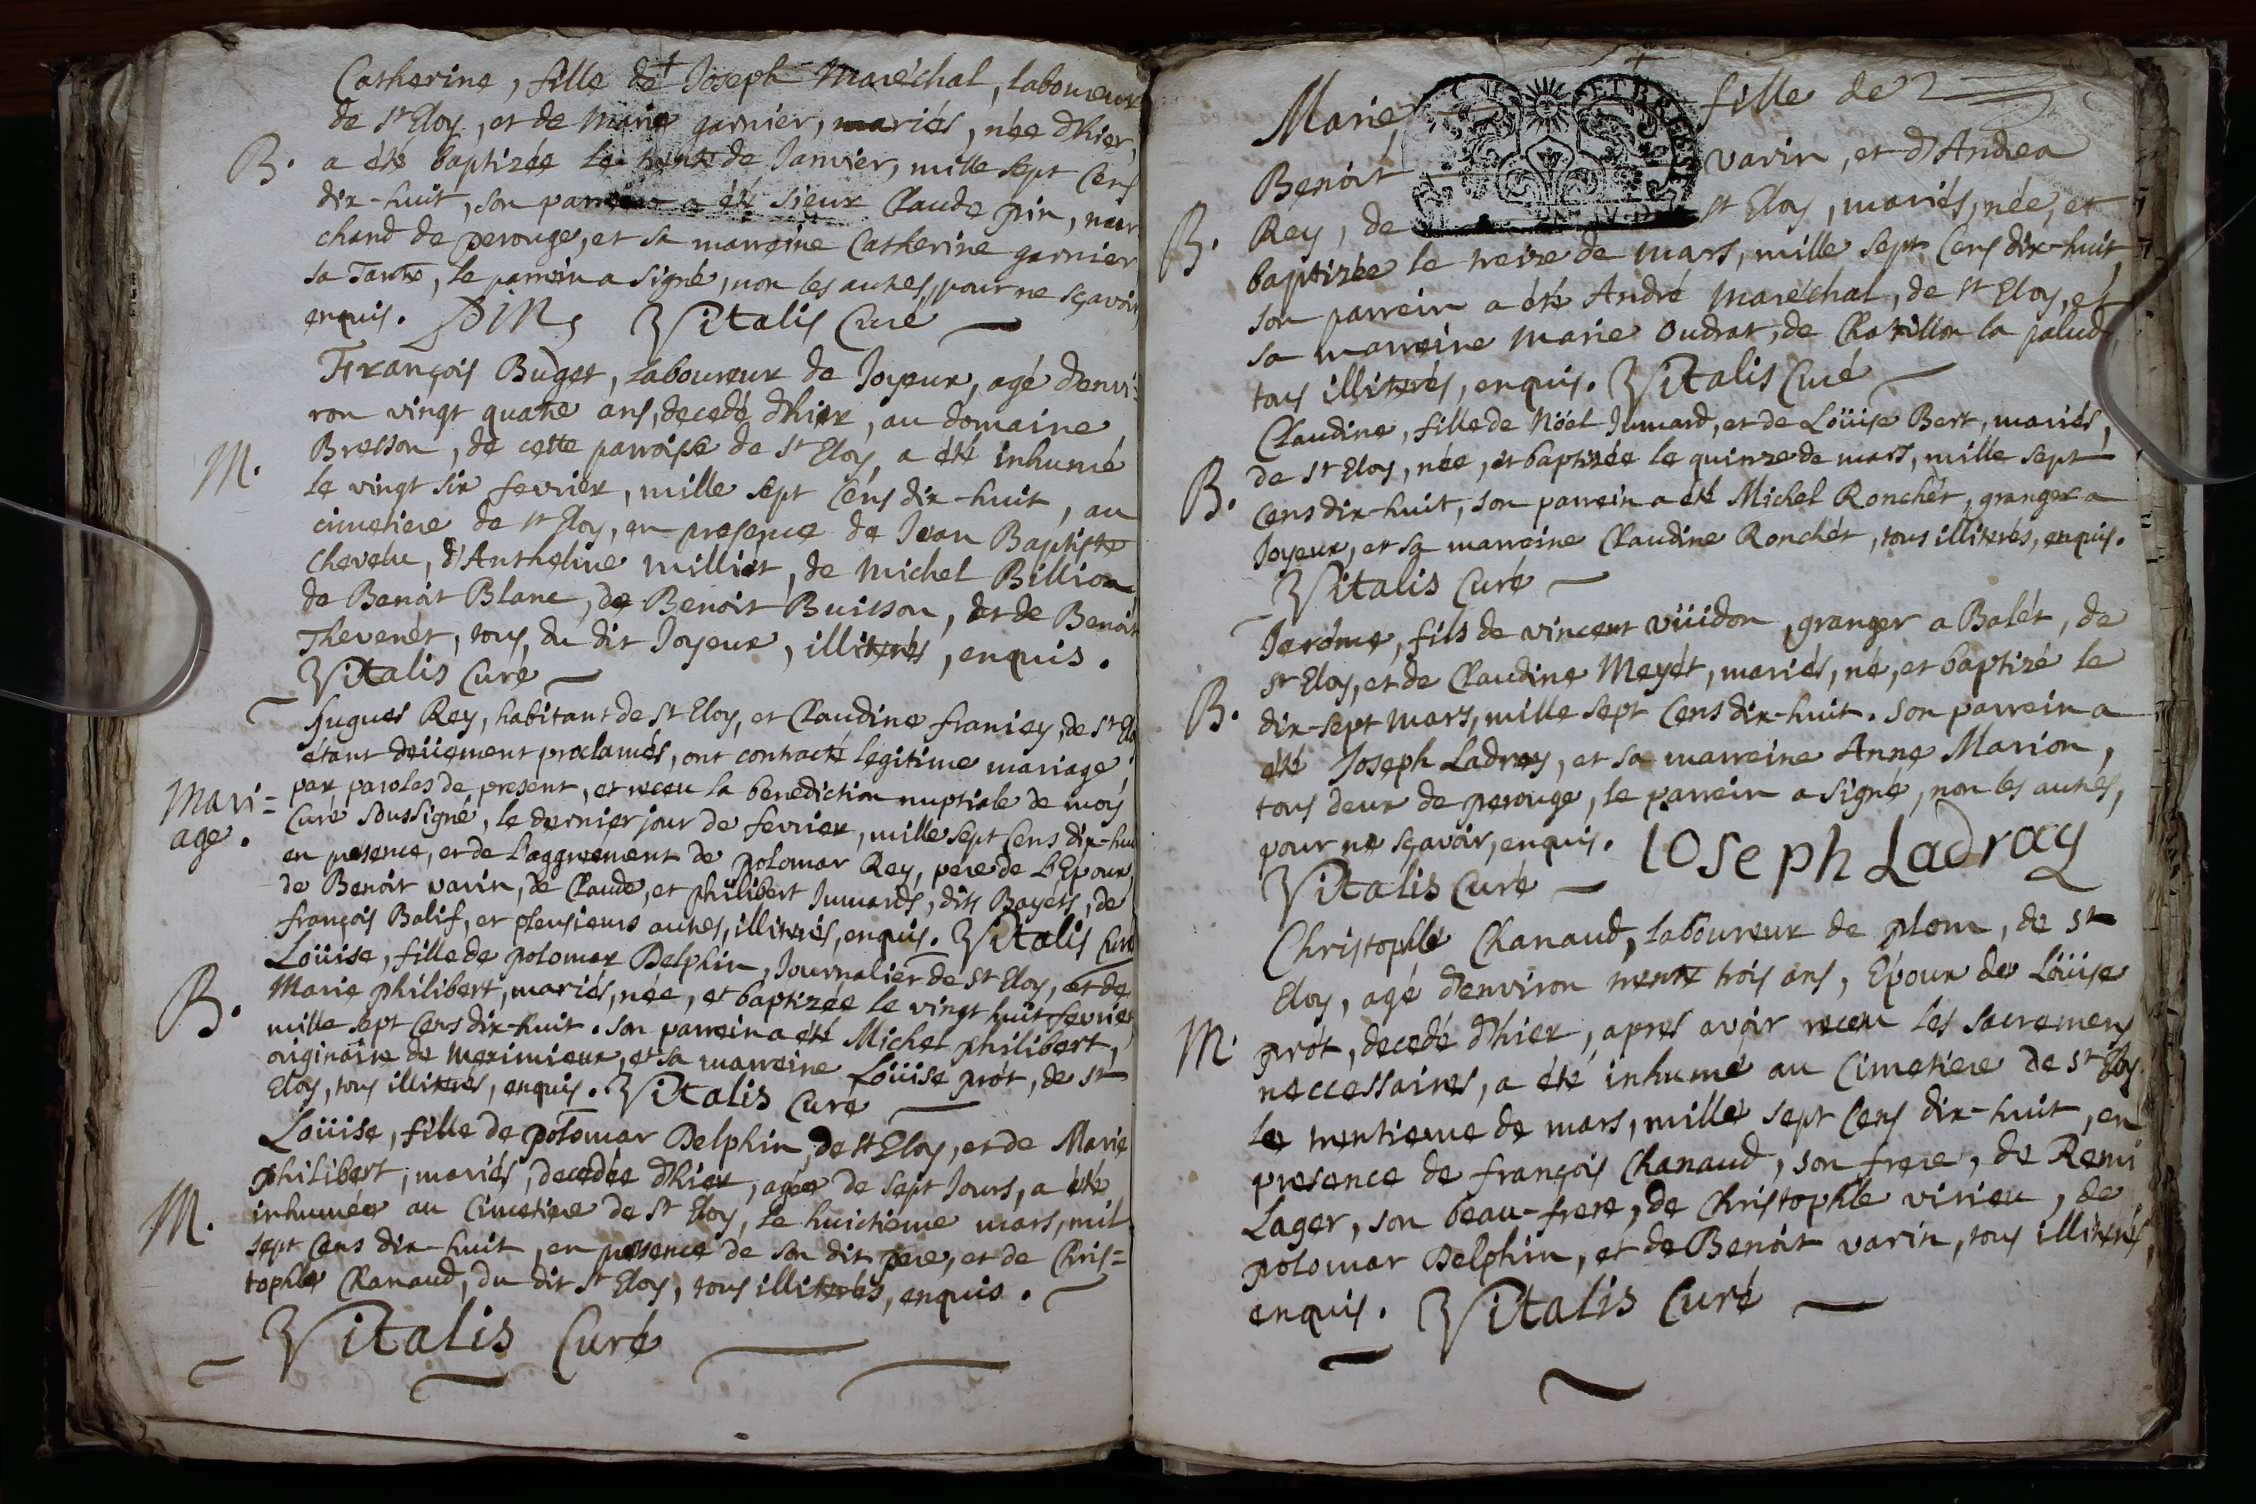 Catherine, fille de Joseph Maréchal, laboureur
de St Eloy, et de Marie garnier, mariés, née d'hier,
B. a été baptizée le trente de Janvier, mille sept Cens
dix-huit, son parrein a été sieur Claude pin, mar
chand de perouge, et sa marreine Catherine garnier
sa Tante, le parrein a signé, non les autres, pour ne sçavoir,
enquis. PIN, Vitalis Curé
François Buget, Laboureur de Joyeux, agé d'envi-
ron vingt quatre ans, decedé d'hier, au domaine
Bresson, de cette parroisse de St Eloy, a été inhumé
M. le vingt six fevrier, mille sept Cens dix-huit, au
cimetiere de St Eloy, en presence de Jean Baptiste
Chevelu, d'Anthelme Milliét, de Michel Billion,
de Benoit Blanc, de Benoit Buisson, et de Benoit
Thevenét, tous du dit Joyeux, illiterés, enquis.
Vitalis Curé
Hugues Rey, habitant de St Eloy, et Claudine franiey, de St Eloy
étant deüement proclamés, ont contracté legitime mariage,
Mari= par paroles de present, et receu la benediction nuptiale de moy
age. Curé soussigné, le dernier jour de fevrier, mille sept Cens dix-huit
en presence, et de l'aggreement de polomar Rey, pere de l'Epoux,
de Benoit varin, de Claude, et philibert Jumards, dits Bayéts, de
françois Balif, et pleusieurs autres, illiterés, enquis. Vitalis Curé
Loüise, fille de polomar Delphin, Journalier de St Eloy, et de
B. Marie philibert, mariés, née, et baptizée le vingt huit fevrier,
mille sept Cens dix-huit. son parrein a été Michel philibert,
originaire de Meximieux, et sa marreine Loüise prót, de St
Eloy, tous illiterés, enquis. Vitalis Curé
Loüise, fille de polomar Delphin, de St Eloy, et de Marie
philibert, mariés, decedée d'hier, agée de sept Jours, a été
M. inhumée au Cimetiere de St Eloy, le huictieme mars, mil
sept Cens dix-huit, en presence de son dit pere, et de Chris=
tophle Chanaud, du dit St Eloy, tous illiterés, enquis.
Vitalis Curé
Marie fille de
Benoit varin, et d'Andrea
B. Rey, de St Eloy, mariés, née, et
baptizée le treize de mars, mille sept Cens dix-huit,
son parrein a été André Maréchal, de St Eloy, et
sa marreine Marie Oudrat, de Chatillon la palud,
tous illiterés, enquis. Vitalis Curé
Claudine, fille de Nöel Jumard, et de Loüise Bert, mariés,
B. de St Eloy, née, et baptizée le quinze de mars, mille sept
Cens dix-huit, son parrein a été Michel Ronchét, granger a
Joyeux, et sa marreine Claudine Ronchét, tous illiterés, enquis.
Vitalis Curé
Jeróme, fils de vincent vüidon, granger a Balét, de
St Eloy, et de Claudine Meyét, mariés, né, et baptizé le
B. dix-sept mars, mille sept Cens dix-huit. son parrein a
été Joseph Ladray, et sa marreine Anne Marion,
tous deux de perouge, le parrein a signé, non les autres,
pour ne sçavoir, enquis. IOseph Ladray
Vitalis Curé
Christophle Chanaud, laboureur de plom, de St
Eloy, agé d'environ trente trois ans, Epoux de Loüise
M. prót, decedé d'hier, apres avoir receu les sacremens
neccessaires, a été inhumé au Cimetiere de St Eloy
le trentieme de mars, mille sept Cens dix-huit, en
presence de françois Chanaud, son frere, de Remi
Lager, son beau-frere, de Christophle virieu, de
polomar Delphin, et de Benoit varin, tous illiterés,
enquis. Vitalis Curé